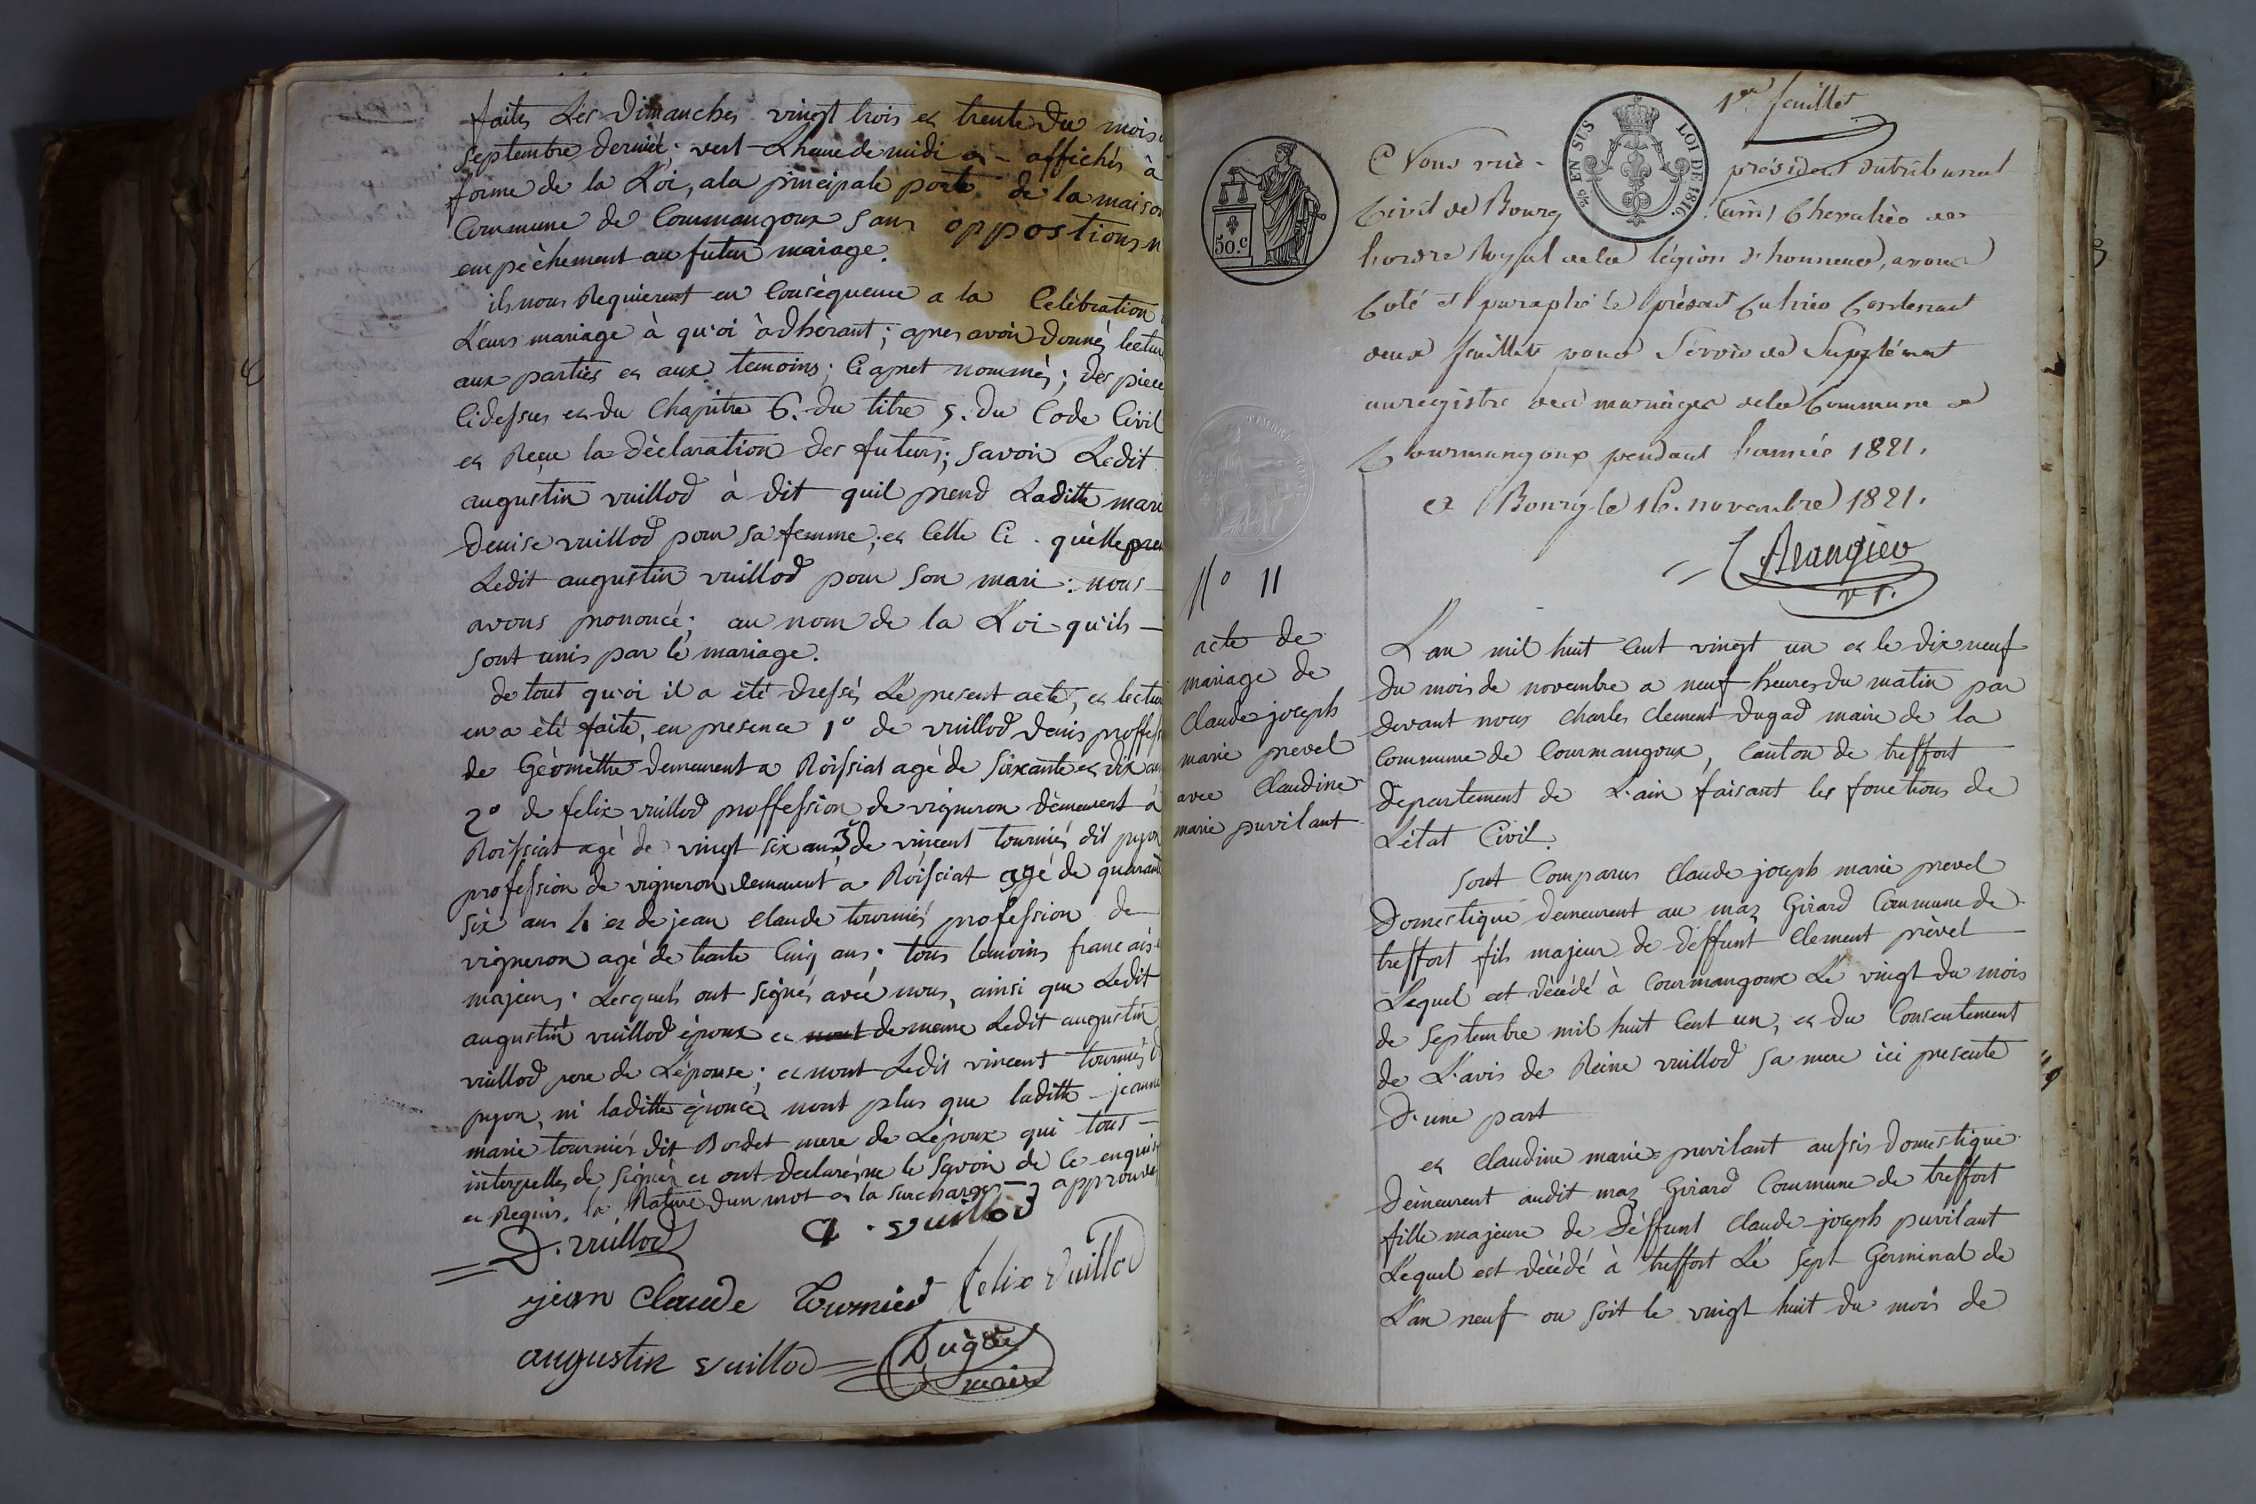 faites Les Dimanches vingt trois et trente Du mois
Septembre dernié vert Lheure de midi et affichés à
forme de la Loi, ala principale porte de la maison
Commune de Courmangoux sans oppostions n
empêchement au futur mariage.
ils nous Requierent en Conséquence a la Celébration
Leurs mariage à qu'oi àdhérant ; apres avoir donnés lectur
aux parties et aux temoins ; Ci apret nommés ; des piece
Cidessus et du Chapitre 6. du titre 5. du Code Civil
et Reçue la déclaration des futurs ; Savoir Ledit
augustin vuillod à dit quil prend Laditte marie
Denise vuillod pour sa femme, et Celle Ci quèlle pren
Ledit augustin vuillod pour son mari : nous
avons prononcé ; au nom de la Loi qu'ils
sont unis par le mariage.
de tout qu'oi il a été dressés Le present acte, et lectur
en a été faite, en presence 1° de vuillod denis proffess
de Géomèttre demeurent a Roissiat agé de soixante et dix ans
2° de felix vuillod proffession de vigneron démeurent à
Roissiat agé de vingt six ans 3° de vincent tourniés dit pyon
profession de vigneron demeurent à Roissiat agé de quarante
six ans 4 et de jean claude tourniés profession de
vigneron agé de trante Cinq ans ; tous temoins francais
majeurs ; Lesquels ont signés avec nous, ainsi que Ledit
augustin vuillod époux et nont de meme Ledit augustin
vuillod pere de L'épouse ; et nont Ledit vincent tourniés d
pyon, ni laditte épouse nont plus que laditte jeanne
marie tourniés dit Bordet mere de Lépoux qui tous
interpellés de signer et ont declarés ne le savoir de ce enquis
et Requis. la Rature dun mot et la surcharge 3 approuvés
D. vuillod
a. vuillod
jean Claude Tournier felix Vuillod
augustin vuillod Dugad
maire
1er feuillet
50.c
¼ EN SUS LOI DE 1816.
Nous président du tribunal
Civil de Bourg (ain) Chevalier de
l'ordre Royal de la légion d'honneur, avons
Coté et paraphé le présent Cahier Contenant
deux feuillets pour Servir de Supplément
au registre des mariages de la Commune de
Courmangoux pendant l'année 1821.
a Bourg le 16. novembre 1821.
N° 11
acte de
mariage de
Claude joseph
marie prevel
avec Claudine
marie puvilant
L'an mil huit Cent vingt un et le dix neuf
du mois de novembre a neuf heures du matin par
devant nous charles clement dugad maire de la
commune de Courmangoux, Canton de treffort
Département de L'ain faisant les fonctions de
L'état Civil.
sont Comparus Claude joseph marie prevel
Domestique demeurent au maz Girard Commune de
treffort fils majeur de deffunt Clement prével
Lequel est décédé à Courmangoux Le vingt du mois
de septembre mil huit Cent un, et du Consentement
de L'avis de Reine vuillod sa mere ici presente
D'une part
et Claudine marie puvilant aussis domestique
Démeurent audit maz Girard Commune de treffort
fille majeure de Déffunt Claude joseph puvilant
Lequel est décédé à treffort Le sept Germinal de
L'an neuf ou soit le vingt huit du mois de